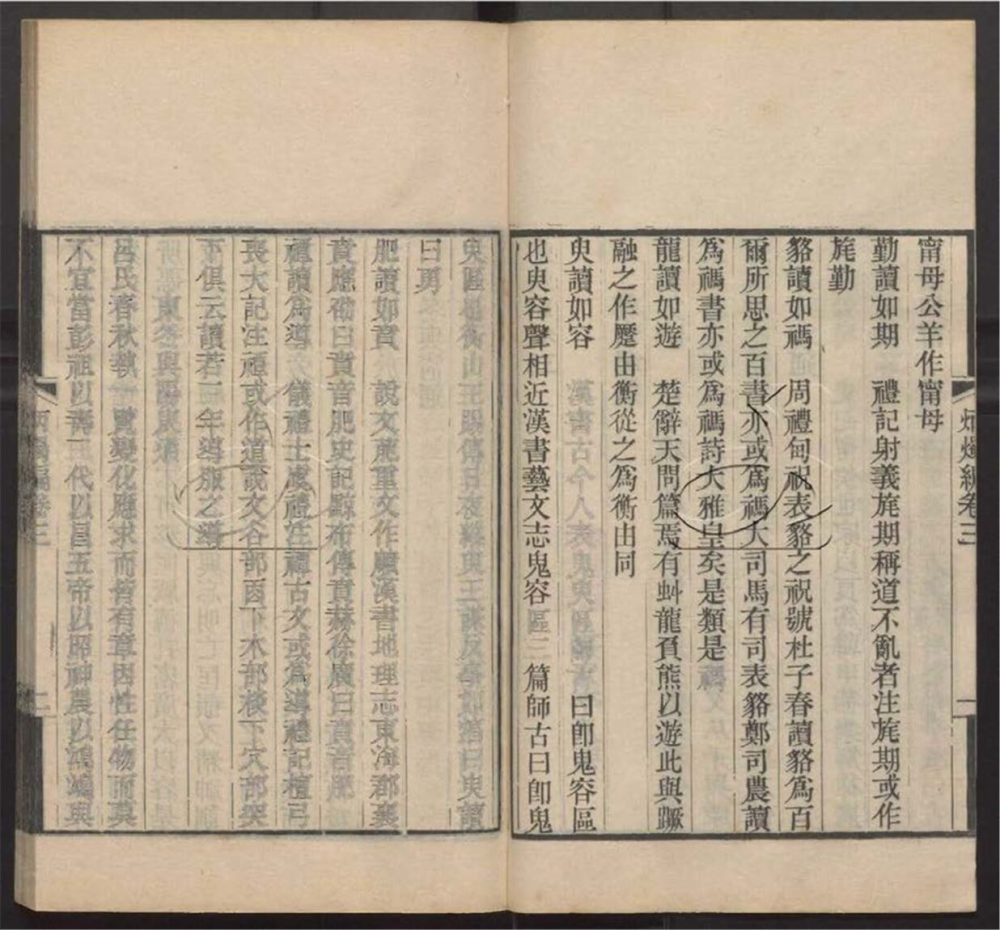 炳燭編卷三 二
甯母公羊作甯母
勤讀如期 禮記射義旄期稱道不亂者注旄期或作
旄勤
貉讀如禡 周禮甸祝表貉之祝號杜子春讀貉爲百
爾所思之百書亦或爲禡大司馬有司表貉鄭司農讀
爲禡書亦或爲禡詩大雅皇矣是類是禡
龍讀如遊 楚辭天問篇焉有虯龍負熊以遊此與蹶
融之作蹷由衡從之爲衡由同
臾讀如容 漢書古今人表鬼臾區師古曰卽鬼容區
也臾容聲相近漢書藝文志鬼容區三篇師古曰卽鬼
臾區也衡山王賜傳日夜縱臾王謀反事如湻曰臾讀
曰勇
肥讀如賁 說文萉重文作𪎰漢書地理志東海郡襄
賁應劭曰賁音肥史記黥布傳賁赫徐廣曰賁音肥
禫讀爲導 儀禮士虞禮注禫古文或爲導禮記檀弓
喪大記注禫或作道說文谷部㐁下木部棪下穴部突
下俱云讀若三年導服之導
東冬與陽
呂氏春秋執一篇變化應求而皆有章因性任物而莫
不宜當彭祖以壽三代以昌五帝以昭神農以鴻鴻與
炳燭編卷三 二